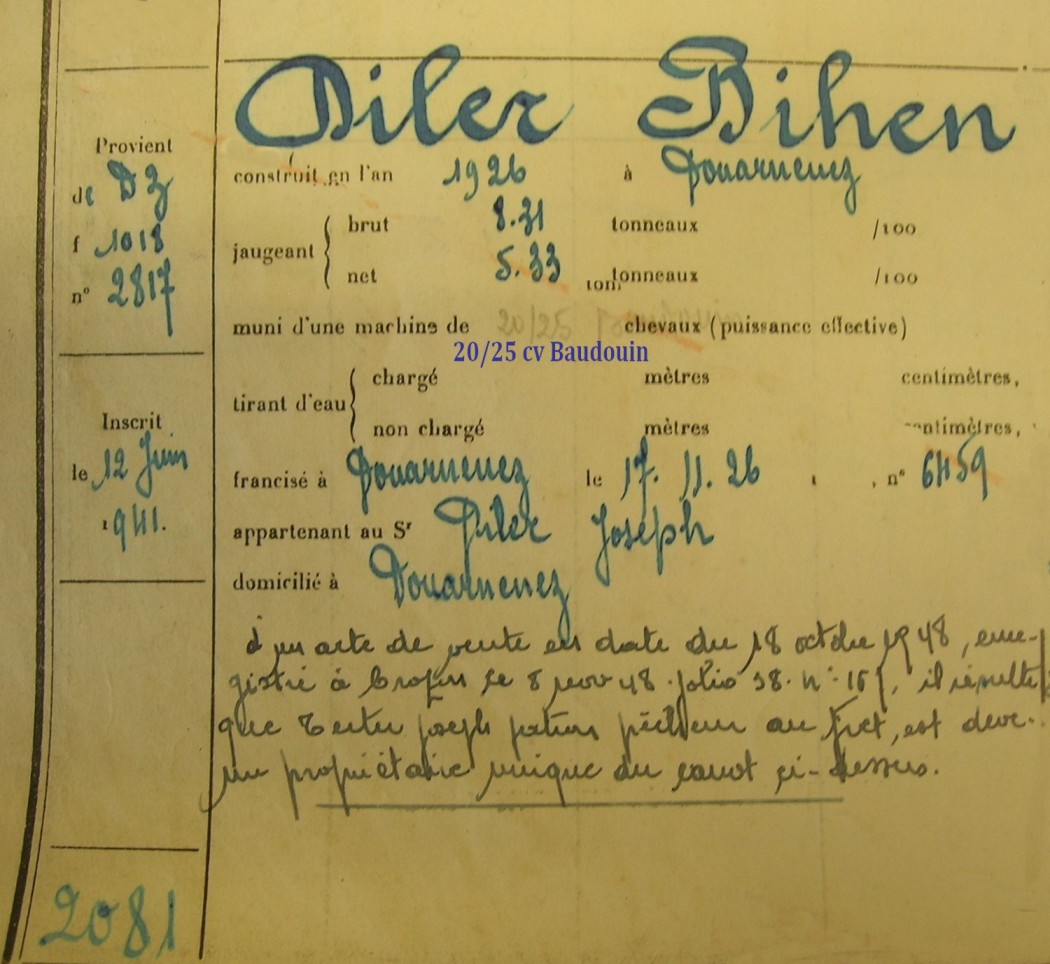 Diler Bihen
Provient
de DZ
f 1018
n° 2817
construit en l'an 1926 à Douarnenez
jaugeant
brut 8.31 tonneaux /100
net 5.33 tonneaux /100
muni d'une machine de 20/25 chevaux (puissance effective)
20/25 cv Baudouin
tirant d'eau
chargé mètres centimètres,
non chargé mètres centimètres,
Inscrit
le 12 Juin
1941.
francisé à Douarnenez le 17. 11. 26 , n° 6459
appartenant au Sr Diler Joseph
domicilié à Douarnenez
d'un acte de vente en date du 18 octobre 1948, enre-
gistré à Crozon le 8 nov 48. folio 38. n°, il résulte
que Joseph patron pêcheur au Fret, est deve-
nu propriétaire unique du canot ci-dessus.
2081